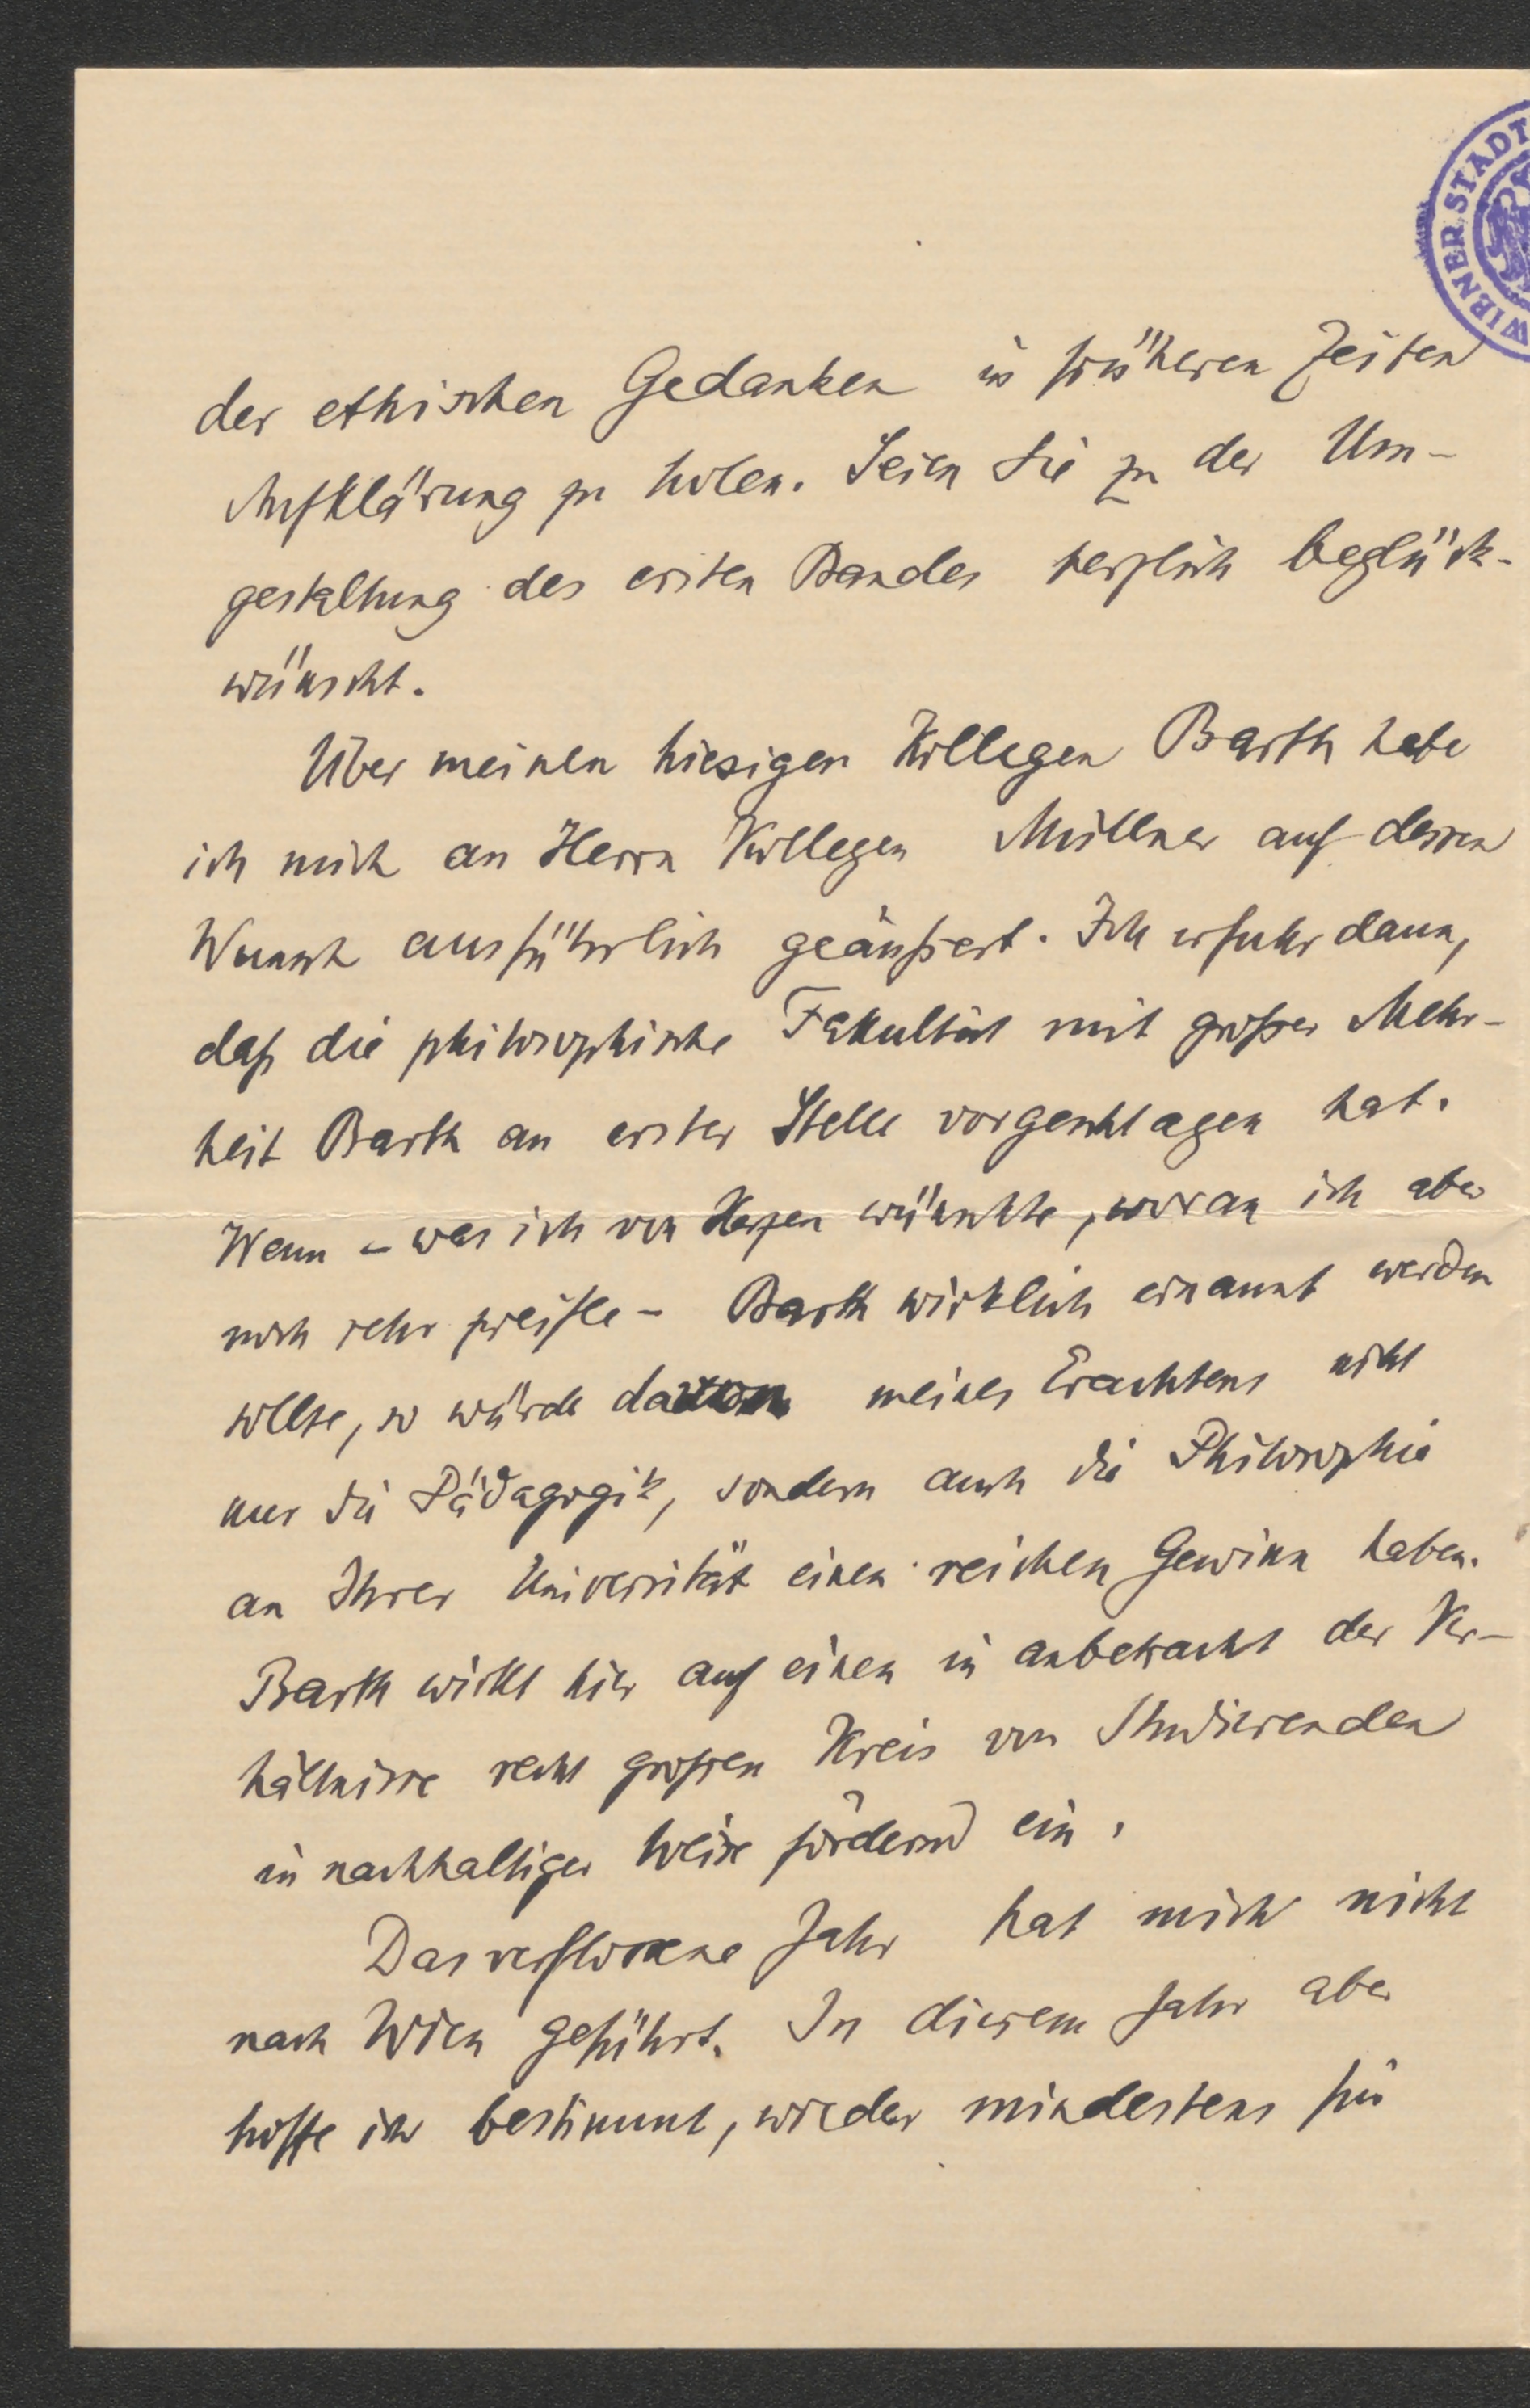 WIENER STADT
der ethischen Gedanken in früheren Zeiten
Aufklärung zu holen. Seien Sie zu der Um-
gestaltung des ersten Bandes herzlich beglück-
wünscht.
Über meinen hiesigen Kollegen Barth habe
ich mich an Herrn Kollegen Müllner auf dessen
Wunsch ausführlich geäußert. Ich erfuhr dann,
daß die philosophische Fakultät mit großer Mehr-
heit Barth an erster Stelle vorgeschlagen hat.
Wenn – was ich von Herzen wünschte, woran ich aber
noch sehr zweifle – Barth wirklich ernannt werden
sollte, so würde meines Erachtens nicht
nur die Pädagogik, sondern auch die Philosophie
an Ihrer Universität einen reichen Gewinn haben.
Barth wirkt hier auf einen in anbetracht der Ver-
hältnisse recht großen Kreis von Studierenden
in nachhaltiger Weise fördernd ein.
Das verflossene Jahr hat mich nicht
nach Wien geführt. In diesem Jahr aber
hoffe ich bestimmt, wieder mindestens für